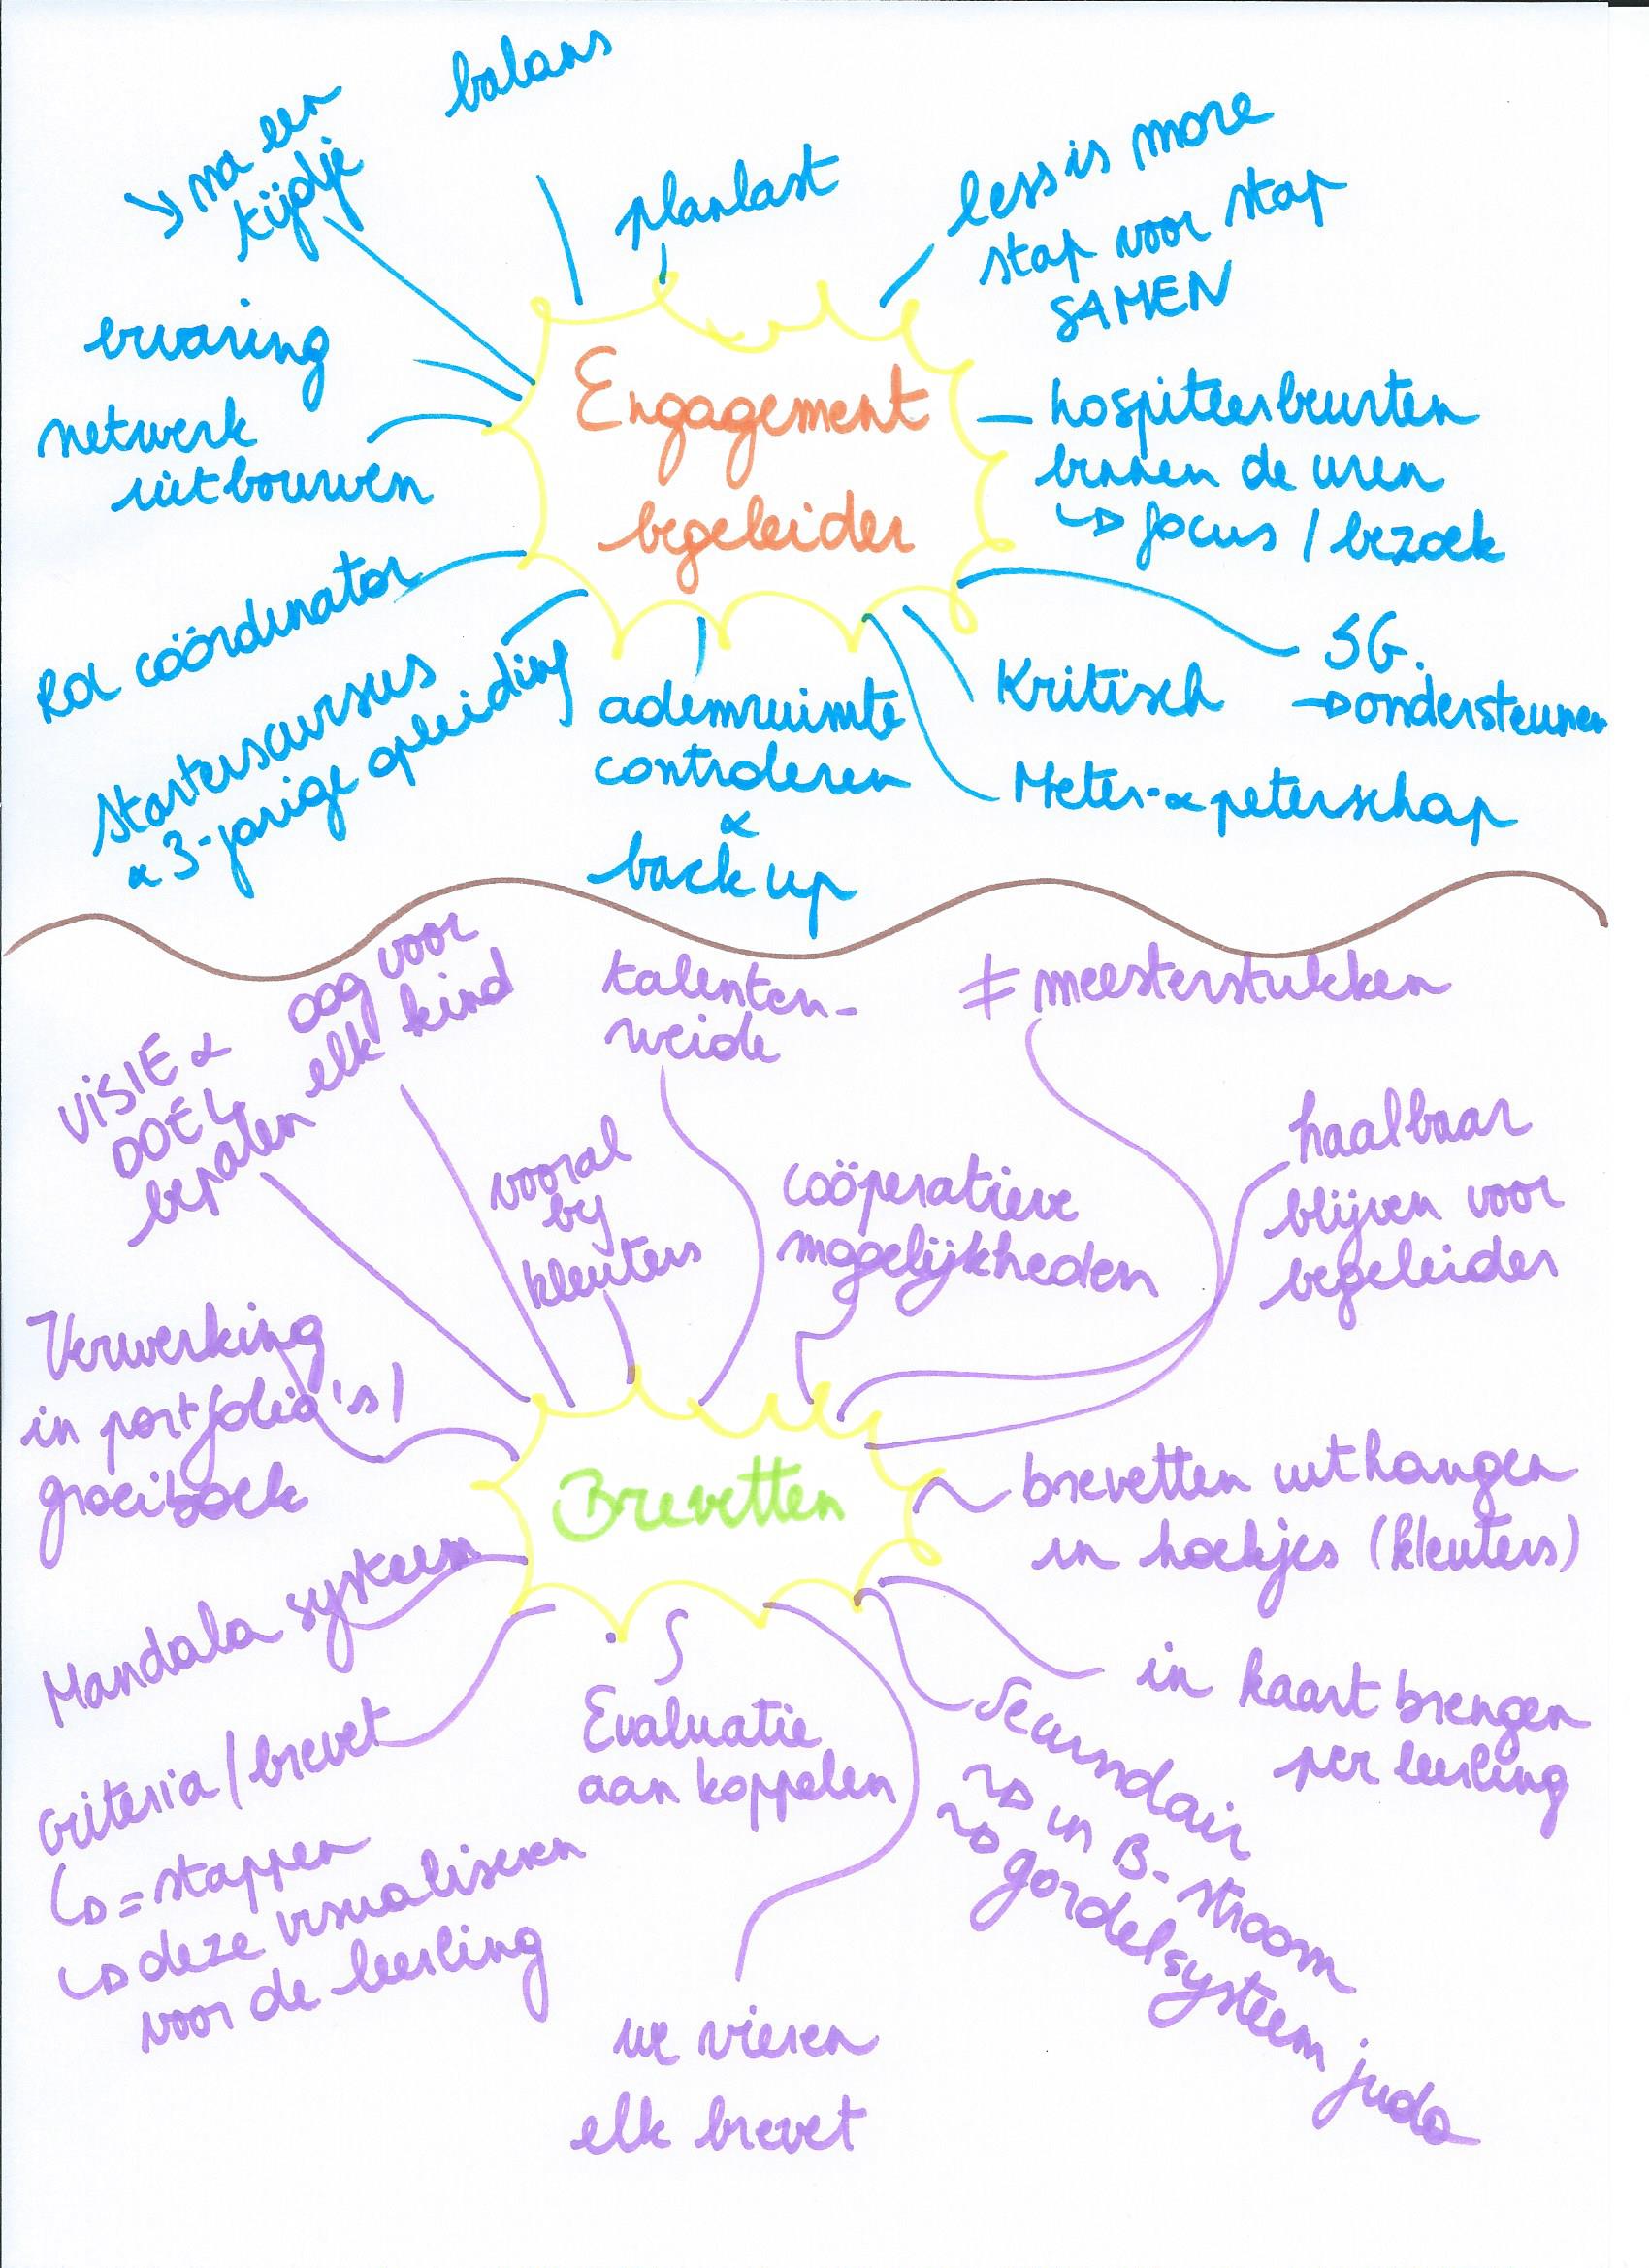 balans
↳ na een
kijdje
planlast
less is more
stap voor stap
SAMEN
ervaring
netwerk
uitbouwen
Engagement
begeleider
hospiteerbeurten
binnen de uren
↳ focus / bezoek
Rol coördinator
Starterscursus
& 3-jarige opleiding
ademruimte
controleren
&
back up
Kritisch
SG.
→ ondersteunen
Meter- & peterschap
VISIE &
DOEL
bepalen
oog voor
elk kind
talenten-
weide
≠ meesterstukken
vooral
bij
kleuters
coöperatieve
mogelijkheden
haalbaar
blijven voor
begeleider
Verwerking
in portfolio's /
groeiboek
Brevetten
brevetten uithangen
in hoekjes (kleuters)
Mandala systeem
criteria / brevet
↳ = stappen
↳ deze visualiseren
voor de leerling
Evaluatie
aan koppelen
we vieren
elk brevet
Secundair
↳ in B-stroom
↳ gordelsysteem judo
in kaart brengen
per leerling